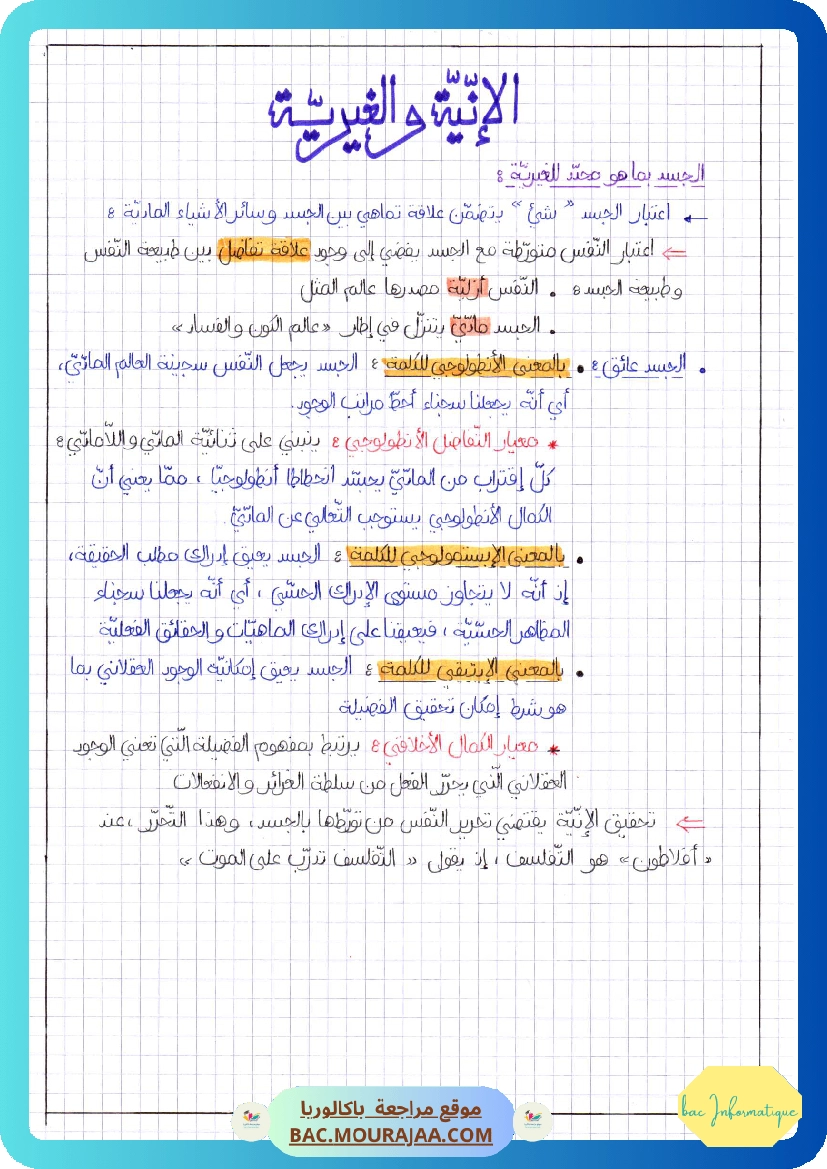 الإنّيّة والغيريّة
الجسد بما هو محدّد للغيريّة :
← اعتبار الجسد "شئ" يتضمّن علاقة تماهي بين الجسد وسائر الأشياء الماديّة :
⇐ اعتبار النّفس متورّطة مع الجسد يفضي إلى وجود علاقة تفاضل بين طبيعة النّفس
وطبيعة الجسد : • النّفس أزليّة مصدرها عالم المثل
• الجسد مادّيّ يتنزّل في إطار «عالم الكون والفساد»
• الجسد عائق : • بالمعنى الأنطولوجي للكلمة : الجسد يجعل النّفس سجينة العالم المادّيّ،
أي أنّه يجعلنا سجناء أحطّ مراتب الوجود.
* معيار التّفاضل الأنطولوجي : ينبني على ثنائيّة المادّي واللّامادّي :
كلّ إقتراب من المادّيّ يجسّد انحطاطا أنطولوجيّا ، ممّا يعني أنّ
الكمال الأنطولوجي يستوجب التّعالي عن المادّيّ.
• بالمعنى الإبستمولوجي للكلمة : الجسد يعيق إدراك مطلب الحقيقة،
إذ أنّه لا يتجاوز مستوى الإدراك الحسّي ، أي أنّه يجعلنا سجناء
المظاهر الحسّيّة ، فيعيقنا على إدراك الماهيّات والحقائق الفعليّة
• بالمعنى الإيتيقي للكلمة : الجسد يعيق إمكانيّة الوجود العقلاني بما
هو شرط إمكان تحقيق الفضيلة
* معيار الكمال الأخلاقي : يرتبط بمفهوم الفضيلة الّتي تعني الوجود
العقلاني الّذي يحرّر الفعل من سلطة الغرائز والانفعالات
⇐ تحقيق الإنّيّة يقتضي تحرير النّفس من تورّطها بالجسد، وهذا التّحرّر ،عند
«أفلاطون» هو التّفلسف ، إذ يقول « التّفلسف تدرّب على الموت »
موقع مراجعة باكالوريا
BAC.MOURAJAA.COM
bac Informatique